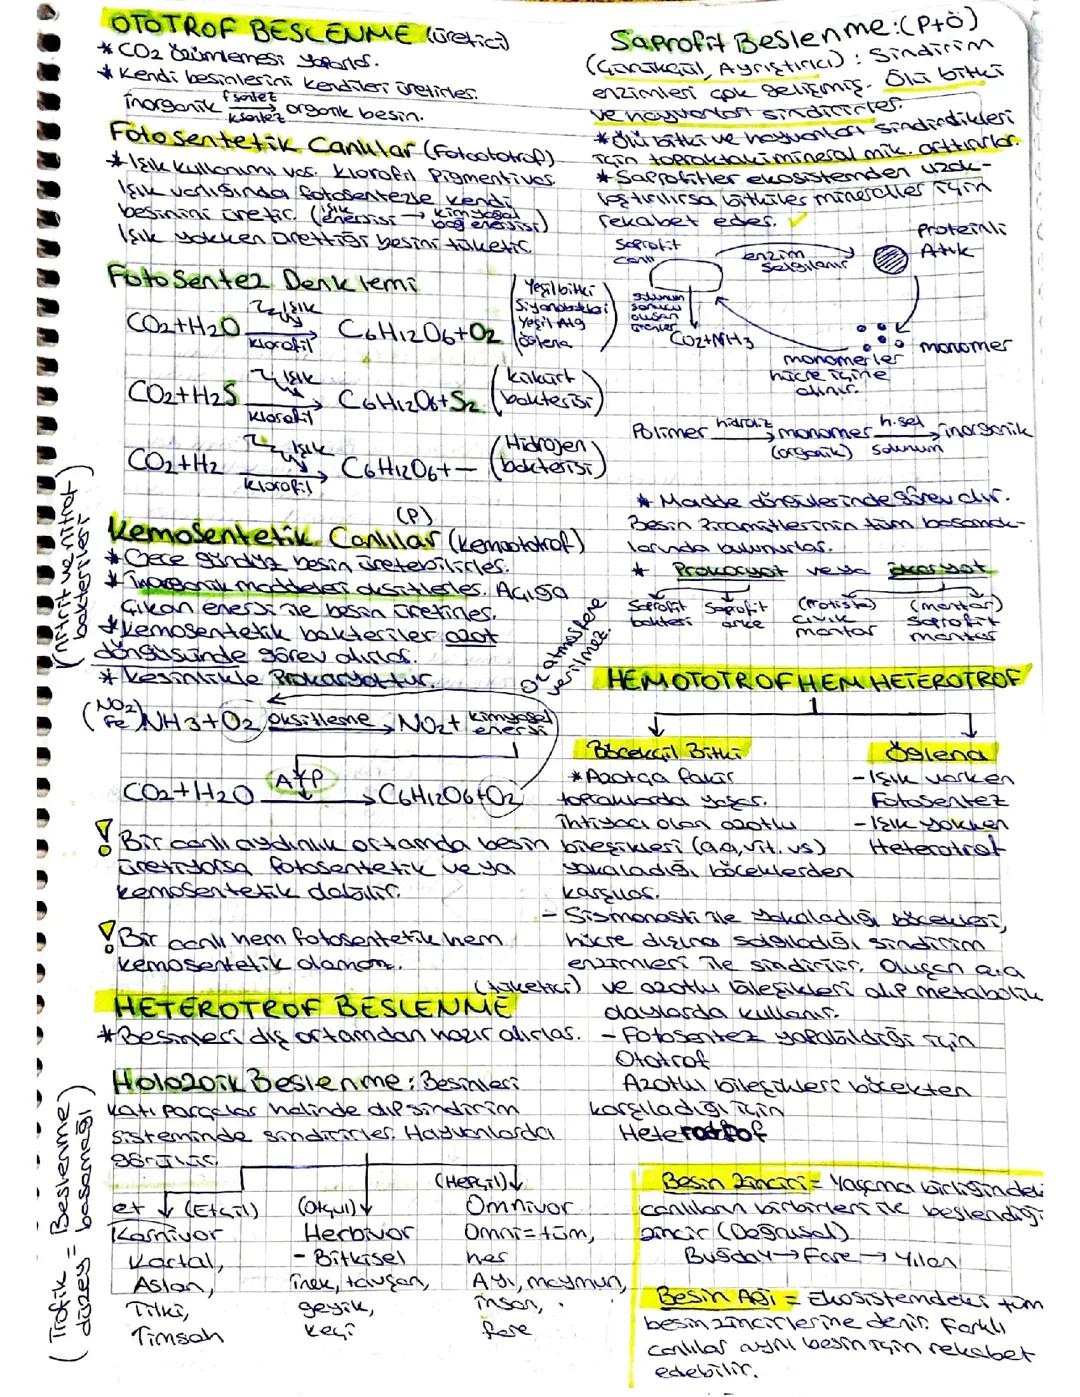 OTOTROF BESLENME (üretici)
* CO2 özümlemesi yaparlar.
* Kendi besinlerini kendileri üretirler.
inorganik fsentez ksentez → organik besin.
Fotosentetik Canlılar (Fotoototrof)
* Işık kullanımı var. Klorofil Pigmenti var.
Işık varlığında fotosentezle kendi
besinini üretir. (ışık enerjisi → kimyasal bağ enerjisi)
Işık yokken ürettiği besini tüketir.
Fotosentez Denklemi
CO2+H2O ışık klorofil → C6H12O6+O2 (Yeşil bitki Siyanobakteri Yeşil Alg Öglena)
CO2+H2S ışık klorofil → C6H12O6+S2 (kükürt bakterisi)
CO2+H2 ışık klorofil → C6H12O6+— (Hidrojen bakterisi)
(P)
Kemosentetik Canlılar (kemoototrof)
(nitrit ve nitrat bakterileri)
* Gece gündüz besin üretebilirler.
* İnorganik maddeleri oksitlerler. Açığa
çıkan enerji ile besin üretirler.
* Kemosentetik bakteriler azot
döngüsünde görev alırlar.
* Kesinlikle Prokaryottur.
O2 atmosfere verilmez.
(NO2 Fe) NH3+O2 oksitleme → NO2+ kimyasal enerji
ATP
CO2+H2O → C6H12O6+O2
! Bir canlı aydınlık ortamda besin
üretiyorsa fotosentetik veya
kemosentetik olabilir.
! Bir canlı hem fotosentetik hem
kemosentetik olamaz.
(tüketici)
HETEROTROF BESLENME
* Besinleri dış ortamdan hazır alırlar.
Holozoik Beslenme: Besinleri
katı parçalar halinde alıp sindirim
sisteminde sindirirler. Hayvanlarda
görülür.
et (Etçil)
Karnivor
Kartal,
Aslan,
Tilki,
Timsah
(Otçul)
Herbivor
- Bitkisel
inek, tavşan,
geyik,
keçi
(Hepçil)
Omnivor
Omni=tüm,
her
Ayı, maymun,
insan,
fare
(Trofik düzey = Beslenme basamağı)
Saprofit Beslenme: (P+Ö)
(Çürükçül, Ayrıştırıcı): Sindirim
enzimleri çok gelişmiş. Ölü bitki
ve hayvanları sindirirler.
* Ölü bitki ve hayvanları sindirdikleri
için topraktaki mineral mik. arttırırlar.
* Saprofitler ekosistemden uzak-
laştırılırsa bitkiler mineraller için
rekabet eder.
Saprofit canlı
enzim salgılanır
Proteinli Atık
solunum sonucu oluşan ürünler
CO2+NH3
monomer
monomerler
hücre içine
alınır.
Polimer hidroliz → monomer (organik) h.sel solunum → inorganik
* Madde döngülerinde görev alır.
Besin Piramitlerinin tüm basamak-
larında bulunurlar.
* Prokaryot veya ökaryot
Saprofit bakteri
Saprofit arke
(Protista) cıvık mantar
(mantar) Saprofit mantar
HEM OTOTROF HEM HETEROTROF
Böcekçil Bitki
* Azotça fakir
topraklarda yaşar.
İhtiyacı olan azotlu
bileşikleri (a.a, vit. vs)
yakaladığı böceklerden
karşılar.
- Sismonasti ile yakaladığı böcekleri,
hücre dışına salgıladığı sindirim
enzimleri ile sindirir. Oluşan a.a
ve azotlu bileşikleri alıp metabolik
olaylarda kullanır.
- Fotosentez yapabildiği için
Ototrof
Azotlu bileşikleri böcekten
karşıladığı için
Heterotrof
Öglena
- Işık varken
Fotosentez
- Işık yokken
Heterotrof
Besin Zinciri = Yaşama birliğindeki
canlıların birbirleri ile beslendiği
zincir (Doğrusal)
Buğday → Fare → Yılan
Besin Ağı = Ekosistemdeki tüm
besin zincirlerine denir. Farklı
canlılar aynı besin için rekabet
edebilir.